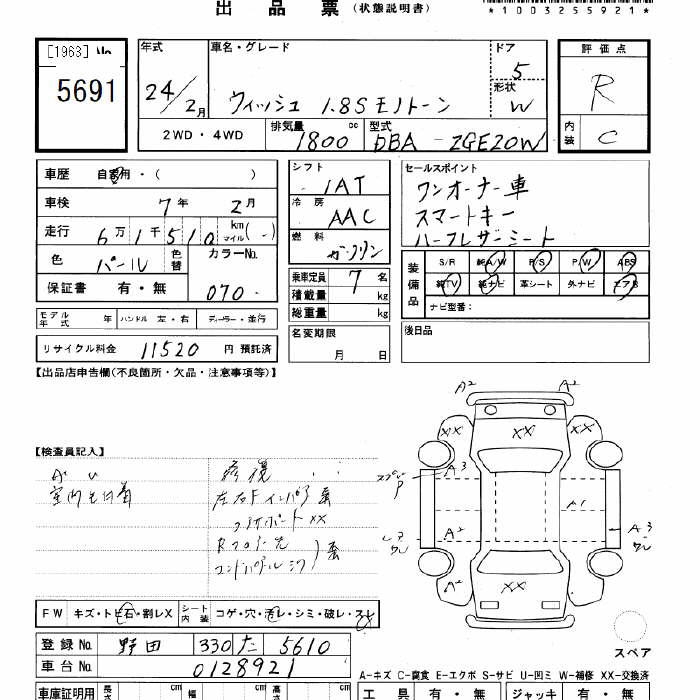 出品票(状態説明書)
*1003255921*
[1963] No
5691
年式 24/2月
車名・グレード ウィッシュ 1.8S モノトーン
ドア 5
形状 W
評価点 R
内装 C
2WD・4WD
排気量 1800 cc
型式 DBA-ZGE20W
車歴 自家用・( )
車検 7年 2月
走行 6万1千510 km マイル(-)
色 パール 色替
カラーNo. 070
保証書 有・無
シフト IAT
冷房 AAC
燃料 ガソリン
乗車定員 7名
積載量 kg
総重量 kg
セールスポイント
ワンオーナー車
スマートキー
ハーフレザーシート
装備品 S/R 純A/W P/S P/W ABS
純TV 純ナビ 革シート 外ナビ エアB
ナビ型番:
モデル年式 年 ハンドル 左・右 ディーラー・並行
リサイクル料金 11520 円 預託済
名変期限 月 日
後日品
【出品店申告欄(不良箇所・欠品・注意事項等)】
A2 A2
XX XX XX
【検査員記入】
修復
A3
A1
A2
A3
A2 XX
FW キズ・トビ石・割レX シート内装 コゲ・穴・汚レ・シミ・破レ・スレ
登録No. 野田 330 た 5610
車台No. 0128921
スペア
A-キズ C-腐食 E-エクボ S-サビ U-凹ミ W-補修 XX-交換済
車庫証明用 長さ cm 幅 cm 高さ cm
工具 有・無 ジャッキ 有・無